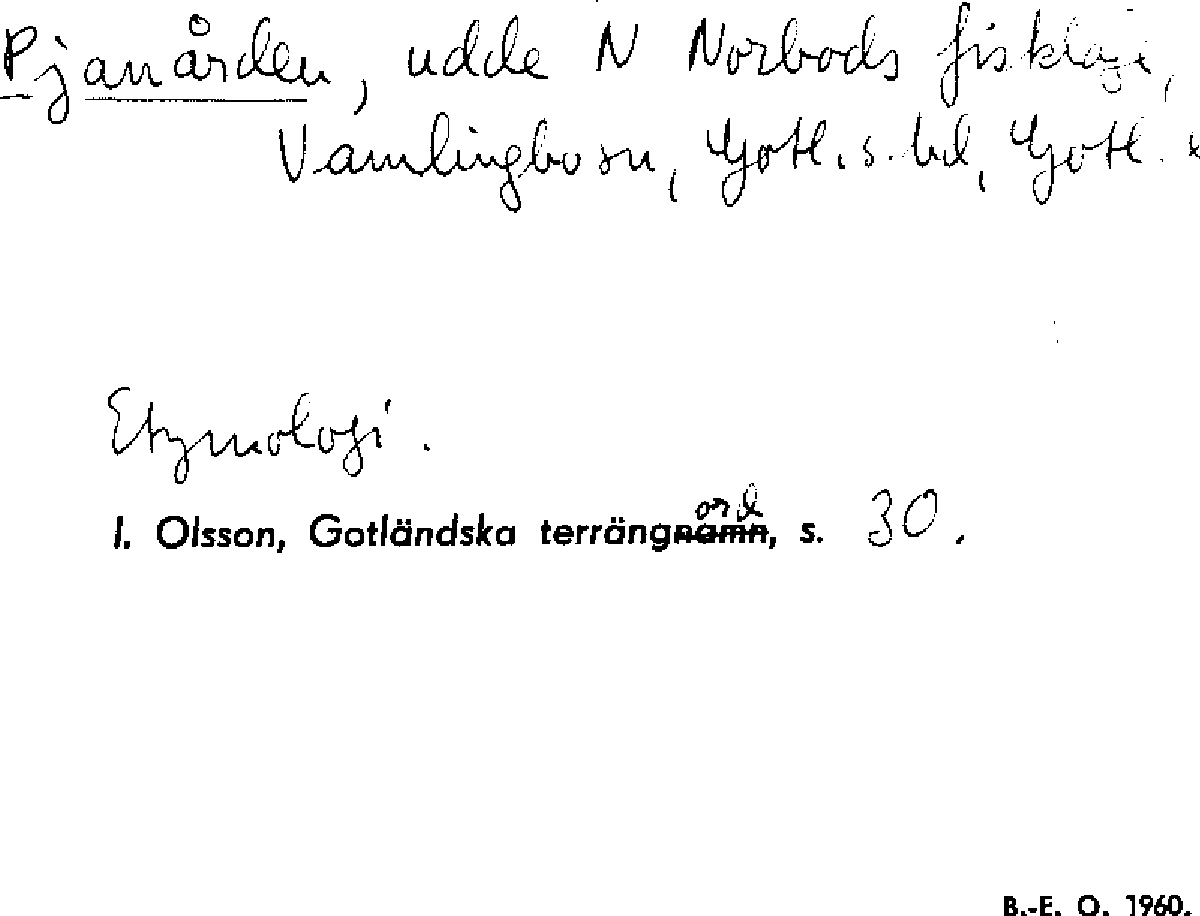 Pjanården, udde N Norbods fiskläge,
Vamlingbo sn, Gotl. s. hd, Gotl.
Etymologi.
I. Olsson, Gotländska terrängord, s. 30.
B.-E. O. 1960.